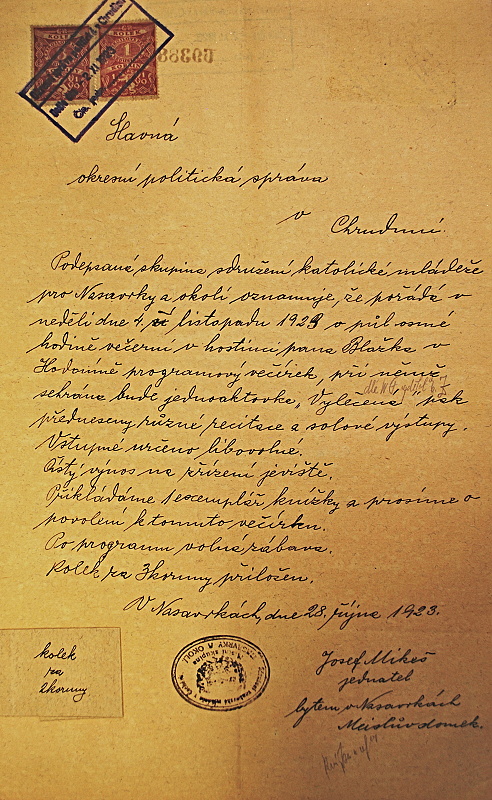 KOLEK
KOLEK
1
KORUNA
Slavná
okresní politická správa
v
Chrudimi.
Podepsaná skupina sdružení katolické mládeže
pro Nasavrky a okolí oznamuje, že pořádá v
neděli dne 4. listopadu 1923 o půl osmé
hodině večerní v hostinci pana Blažka v
Hodoníně programový večírek, při němž
sehrána bude jednoaktovka „Vyléčena" pak
předneseny různé recitace a solové výstupy.
Vstupné určeno libovolné.
Čistý výnos na zřízení jeviště.
Přikládáme 1 exemplář knížky a prosíme o
povolení k tomuto večírku.
Po programu volná zábava.
Kolek za 3 koruny přiložen.
V Nasavrkách, dne 28. října 1923.
kolek
za
2 koruny.
Josef Mikeš
jednatel
bytem v Nasavrkách